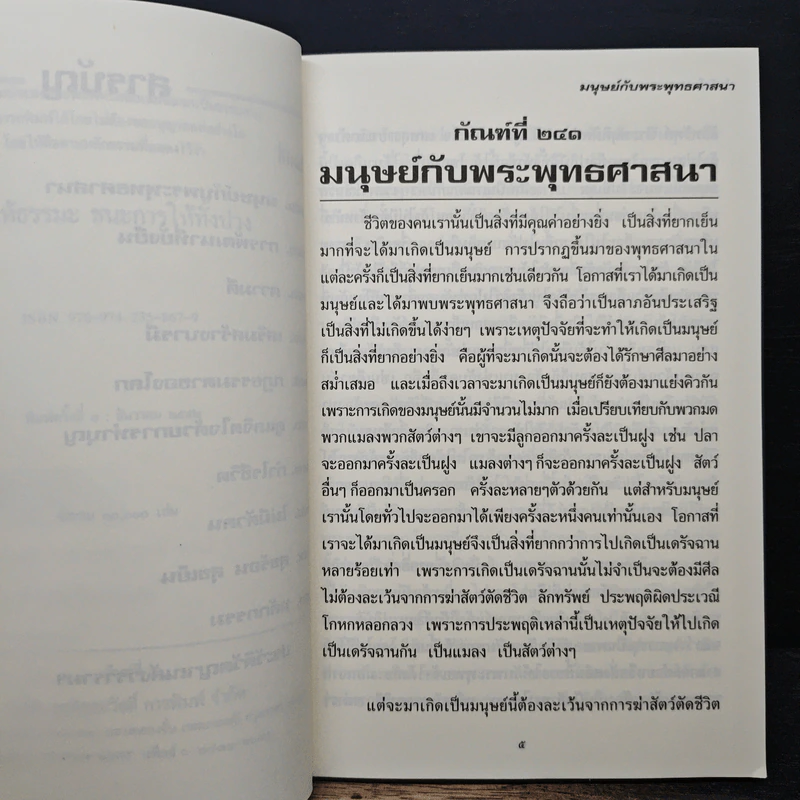 มนุษย์กับพระพุทธศาสนา
กัณฑ์ที่ ๒๔๑
มนุษย์กับพระพุทธศาสนา
ชีวิตของคนเรานั้นเป็นสิ่งที่มีคุณค่าอย่างยิ่ง เป็นสิ่งที่ยากเย็น
มากที่จะได้มาเกิดเป็นมนุษย์ การปรากฏขึ้นมาของพุทธศาสนาใน
แต่ละครั้งก็เป็นสิ่งที่ยากเย็นมากเช่นเดียวกัน โอกาสที่เราได้มาเกิดเป็น
มนุษย์และได้มาพบพระพุทธศาสนา จึงถือว่าเป็นลาภอันประเสริฐ
เป็นสิ่งที่ไม่เกิดขึ้นได้ง่ายๆ เพราะเหตุปัจจัยที่จะทำให้เกิดเป็นมนุษย์
ก็เป็นสิ่งที่ยากอย่างยิ่ง คือผู้ที่จะมาเกิดนั้นจะต้องได้รักษาศีลมาอย่าง
สม่ำเสมอ และเมื่อถึงเวลาจะมาเกิดเป็นมนุษย์ก็ยังต้องมาแย่งคิวกัน
เพราะการเกิดของมนุษย์นั้นมีจำนวนไม่มาก เมื่อเปรียบเทียบกับพวกมด
พวกแมลงพวกสัตว์ต่างๆ เขาจะมีลูกออกมาครั้งละเป็นฝูง เช่น ปลา
จะออกมาครั้งละเป็นฝูง แมลงต่างๆ ก็จะออกมาครั้งละเป็นฝูง สัตว์
อื่นๆ ก็ออกมาเป็นครอก ครั้งละหลายๆตัวด้วยกัน แต่สำหรับมนุษย์
เรานั้นโดยทั่วไปจะออกมาได้เพียงครั้งละหนึ่งคนเท่านั้นเอง โอกาสที่
เราจะได้มาเกิดเป็นมนุษย์จึงเป็นสิ่งที่ยากกว่าการไปเกิดเป็นเดรัจฉาน
หลายร้อยเท่า เพราะการเกิดเป็นเดรัจฉานนั้นไม่จำเป็นจะต้องมีศีล
ไม่ต้องละเว้นจากการฆ่าสัตว์ตัดชีวิต ลักทรัพย์ ประพฤติผิดประเวณี
โกหกหลอกลวง เพราะการประพฤติเหล่านี้เป็นเหตุปัจจัยให้ไปเกิด
เป็นเดรัจฉานกัน เป็นแมลง เป็นสัตว์ต่างๆ
แต่จะมาเกิดเป็นมนุษย์นี้ต้องละเว้นจากการฆ่าสัตว์ตัดชีวิต
๕